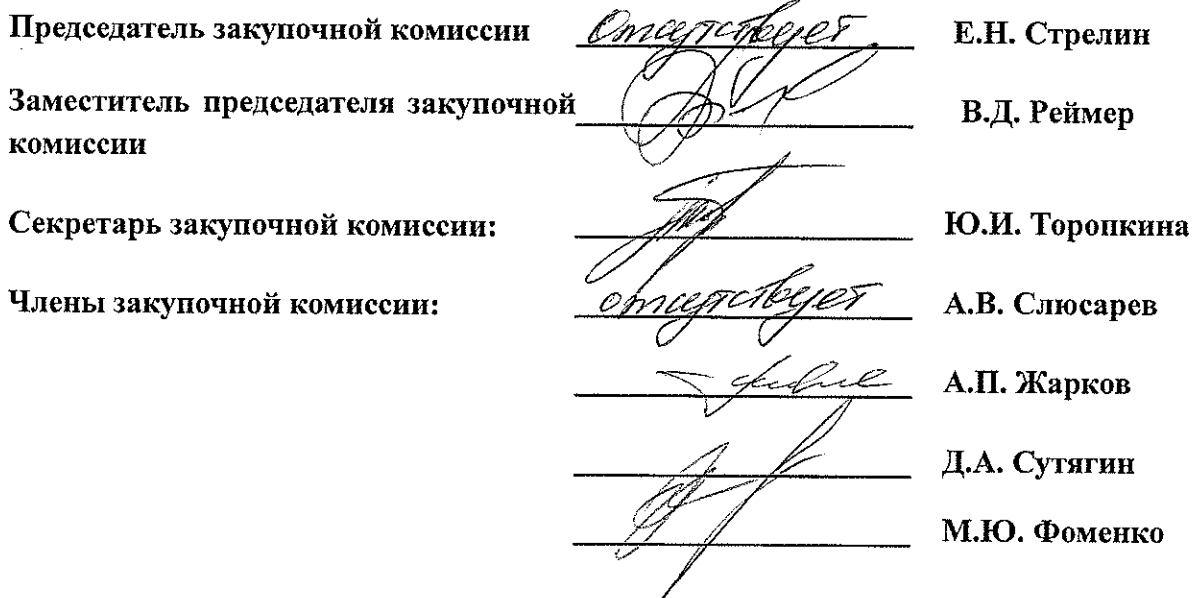 Председатель закупочной комиссии отсутствует Е.Н. Стрелин
Заместитель председателя закупочной В.Д. Реймер
комиссии
Секретарь закупочной комиссии: Ю.И. Торопкина
Члены закупочной комиссии: отсутствует А.В. Слюсарев
А.П. Жарков
Д.А. Сутягин
М.Ю. Фоменко